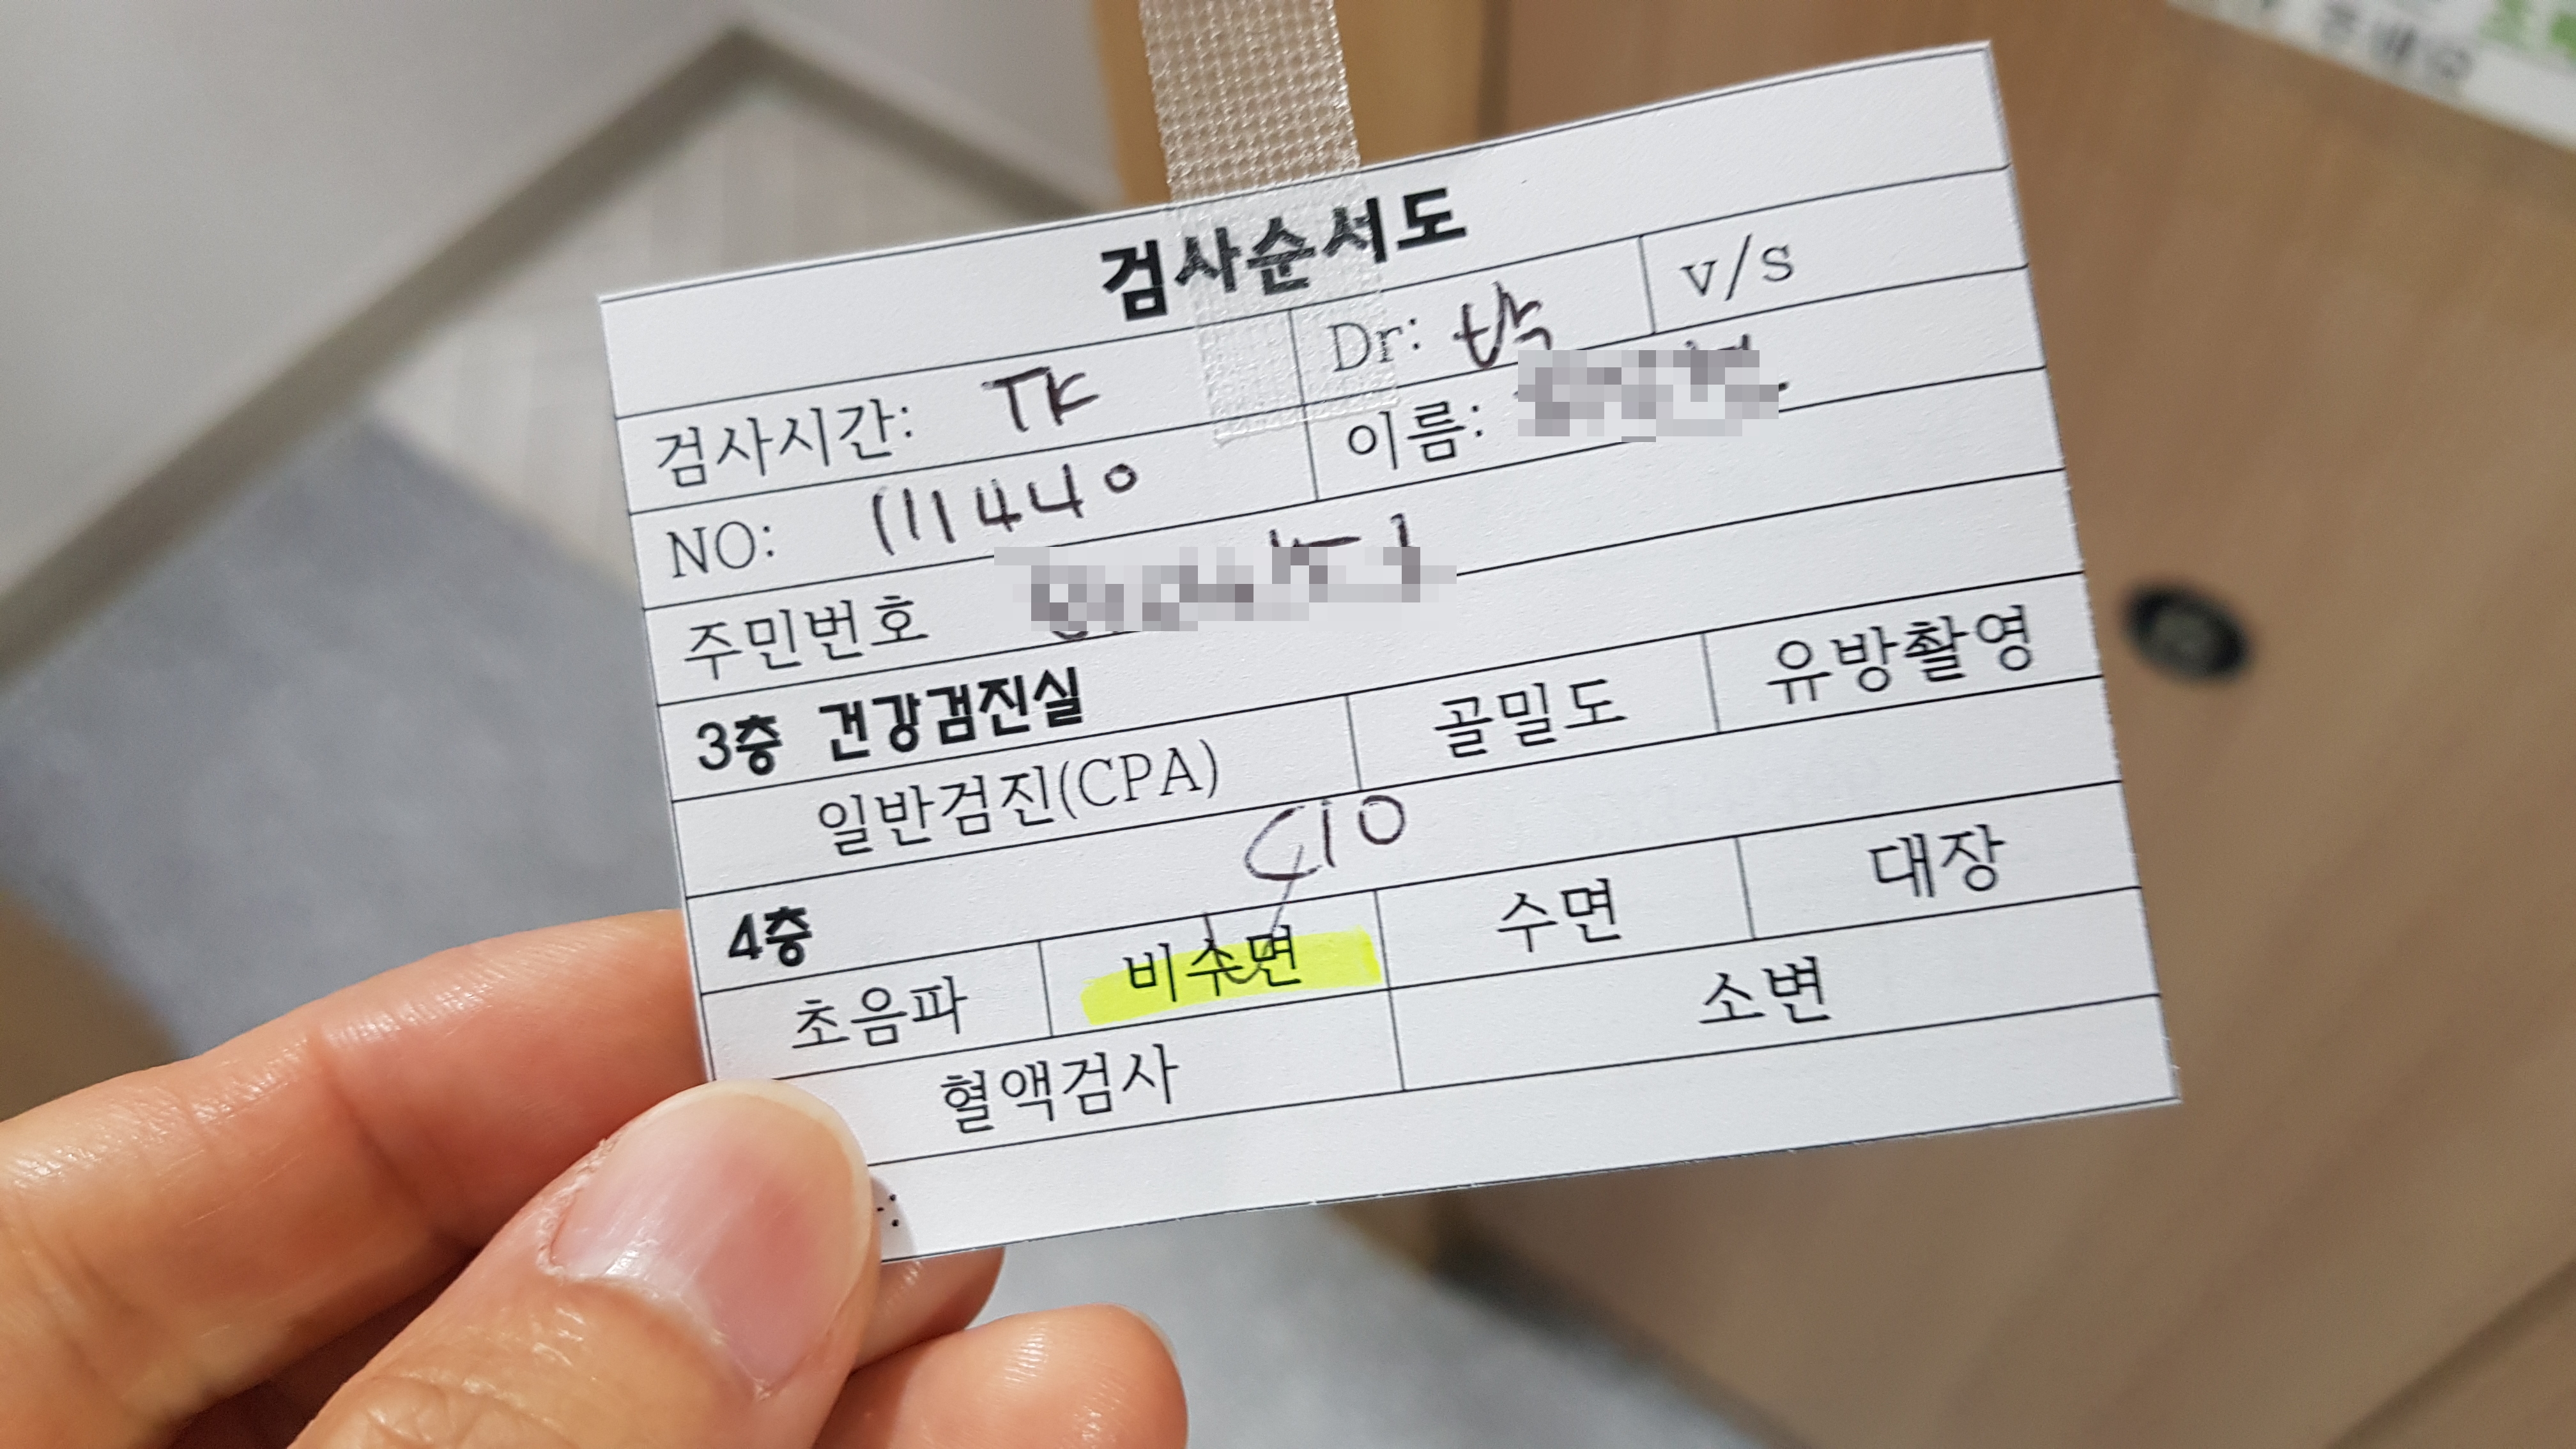 검사순서도
검사시간: TK Dr: 박 v/s
NO: 111440 이름:
주민번호
3층 건강검진실
일반검진(CPA) 골밀도 유방촬영
4층
초음파 비수면 수면 대장
혈액검사 소변